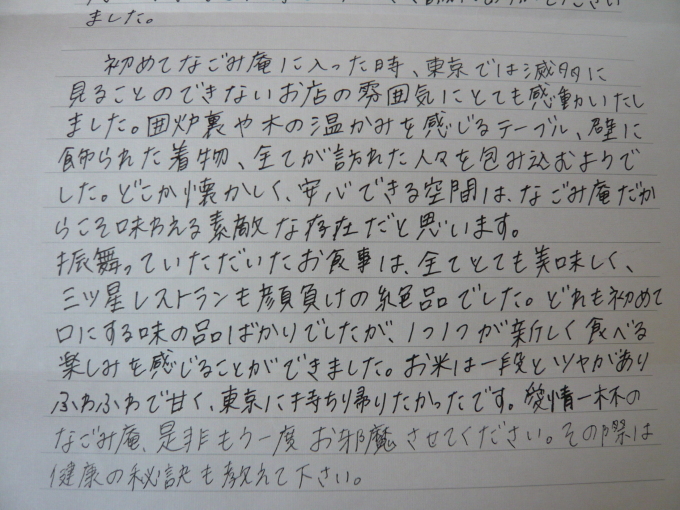 ました。
初めてなごみ庵に入った時、東京では滅多に
見ることのできないお店の雰囲気にとても感動いたし
ました。囲炉裏や木の温かみを感じるテーブル、壁に
飾られた着物、全てが訪れた人々を包み込むようで
した。どこか懐かしく、安心できる空間は、なごみ庵だか
らこそ味わえる素敵な存在だと思います。
振舞っていただいたお食事は、全てとても美味しく、
三ツ星レストランも顔負けの絶品でした。どれも初めて
口にする味の品ばかりでしたが、1つ1つが新しく食べる
楽しみを感じることができました。お米は一段とツヤがあり
ふわふわで甘く、東京に持ち帰りたかったです。愛情一杯の
なごみ庵、是非もう一度お邪魔させてください。その際は
健康の秘訣も教えて下さい。